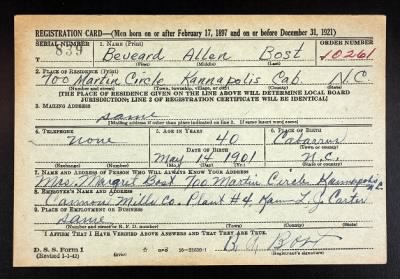 REGISTRATION CARD—(Men born on or after February 17, 1897 and on or before December 31, 1921)
SERIAL NUMBER 1. NAME (Print) ORDER NUMBER
839 Beveard Allen Bost 10261
(First) (Middle) (Last)
2. PLACE OF RESIDENCE (Print)
700 Martin Circle Kannapolis Cab. N.C.
(Number and street) (Town, township, village, or city) (County) (State)
[THE PLACE OF RESIDENCE GIVEN ON THE LINE ABOVE WILL DETERMINE LOCAL BOARD
JURISDICTION; LINE 2 OF REGISTRATION CERTIFICATE WILL BE IDENTICAL]
3. MAILING ADDRESS
Same
[Mailing address if other than place indicated on line 2. If same insert word same]
4. TELEPHONE 5. AGE IN YEARS 6. PLACE OF BIRTH
none 40 Cabarrus
DATE OF BIRTH (Town or county)
May 14 1901 N.C.
(Exchange) (Number) (Mo.) (Day) (Yr.) (State or country)
7. NAME AND ADDRESS OF PERSON WHO WILL ALWAYS KNOW YOUR ADDRESS
Mrs. Margret Bost 700 Martin Circle Kannapolis N.C.
8. EMPLOYER'S NAME AND ADDRESS
Cannon Mills Co. Plant #4 Kan- L. J. Carter
9. PLACE OF EMPLOYMENT OR BUSINESS
Same
(Number and street or R. F. D. number) (Town) (County) (State)
I AFFIRM THAT I HAVE VERIFIED ABOVE ANSWERS AND THAT THEY ARE TRUE.
B. A. Bost
D. S. S. Form 1
(Revised 1-1-42) 16—21630-1